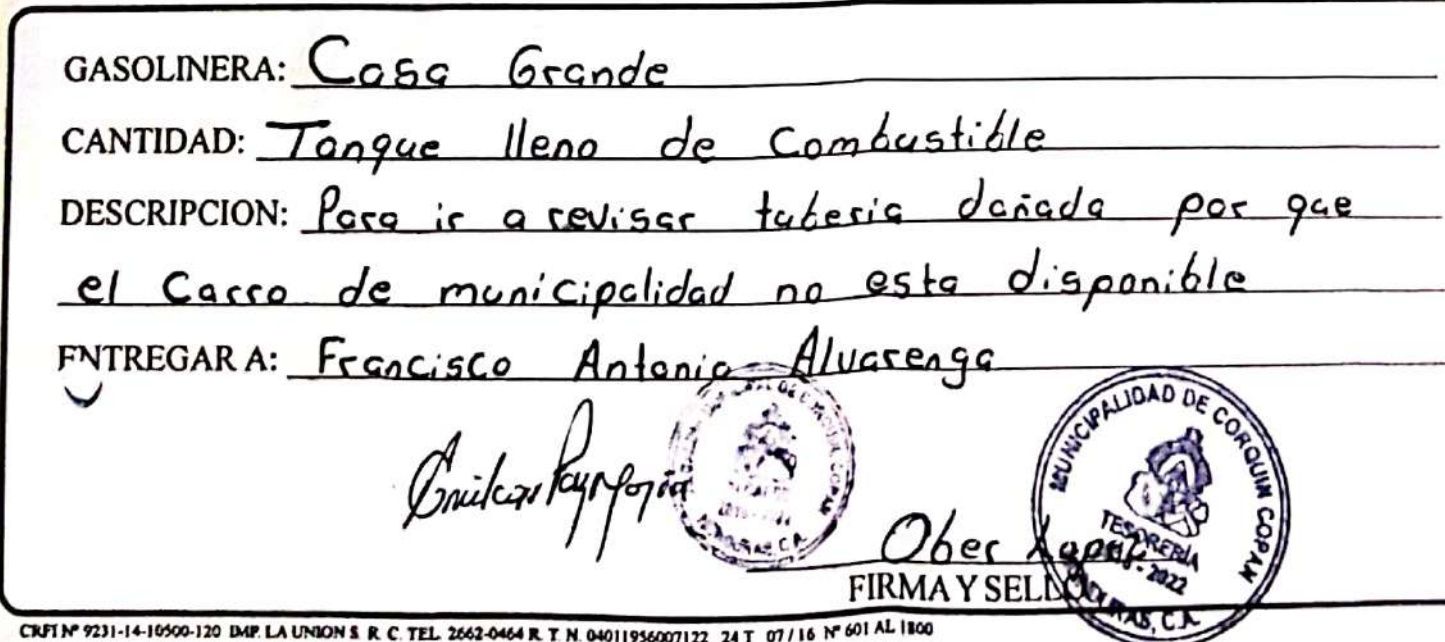 GASOLINERA: Casa Grande
CANTIDAD: Tanque lleno de Combustible
DESCRIPCION: Para ir a revisar tuberia dañada por que
el Carro de municipalidad no esta disponible
ENTREGAR A: Francisco Antonio Alvarenga
Ober
FIRMA Y SELLO
MUNICIPALIDAD DE CORQUIN COPAN
TESORERÍA
2022
HONDURAS, C.A.
COPAN
CRFI Nº 9231-14-10500-120 IMP. LA UNION S. R. C. TEL. 2662-0464 R. T. N. 04011956007122 24 T 07/16 Nº 601 AL 1800